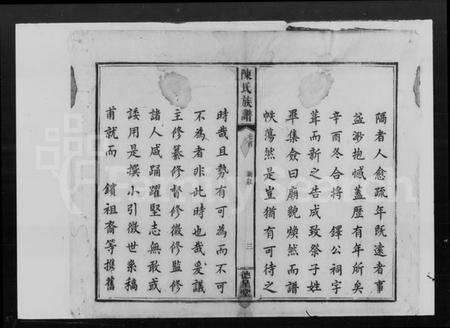 隔者人愈疏年既遠者事
益渺抱憾蓋歷有年所矣
辛酉冬合將 鐸公祠宇
葺而新之告成致祭子姓
畢集僉曰廟貌煥然而譜
帙蕩然是豈猶有可待之
陳氏族譜
卷首
三
時哉且勢有可為而不可
不為者非此時也哉爰議
主修纂修督修徵修監修
諸人咸踴躍堅志無敢或
諉用是撰小引徵世系稿
甫就而 鎖祖裔等攜舊